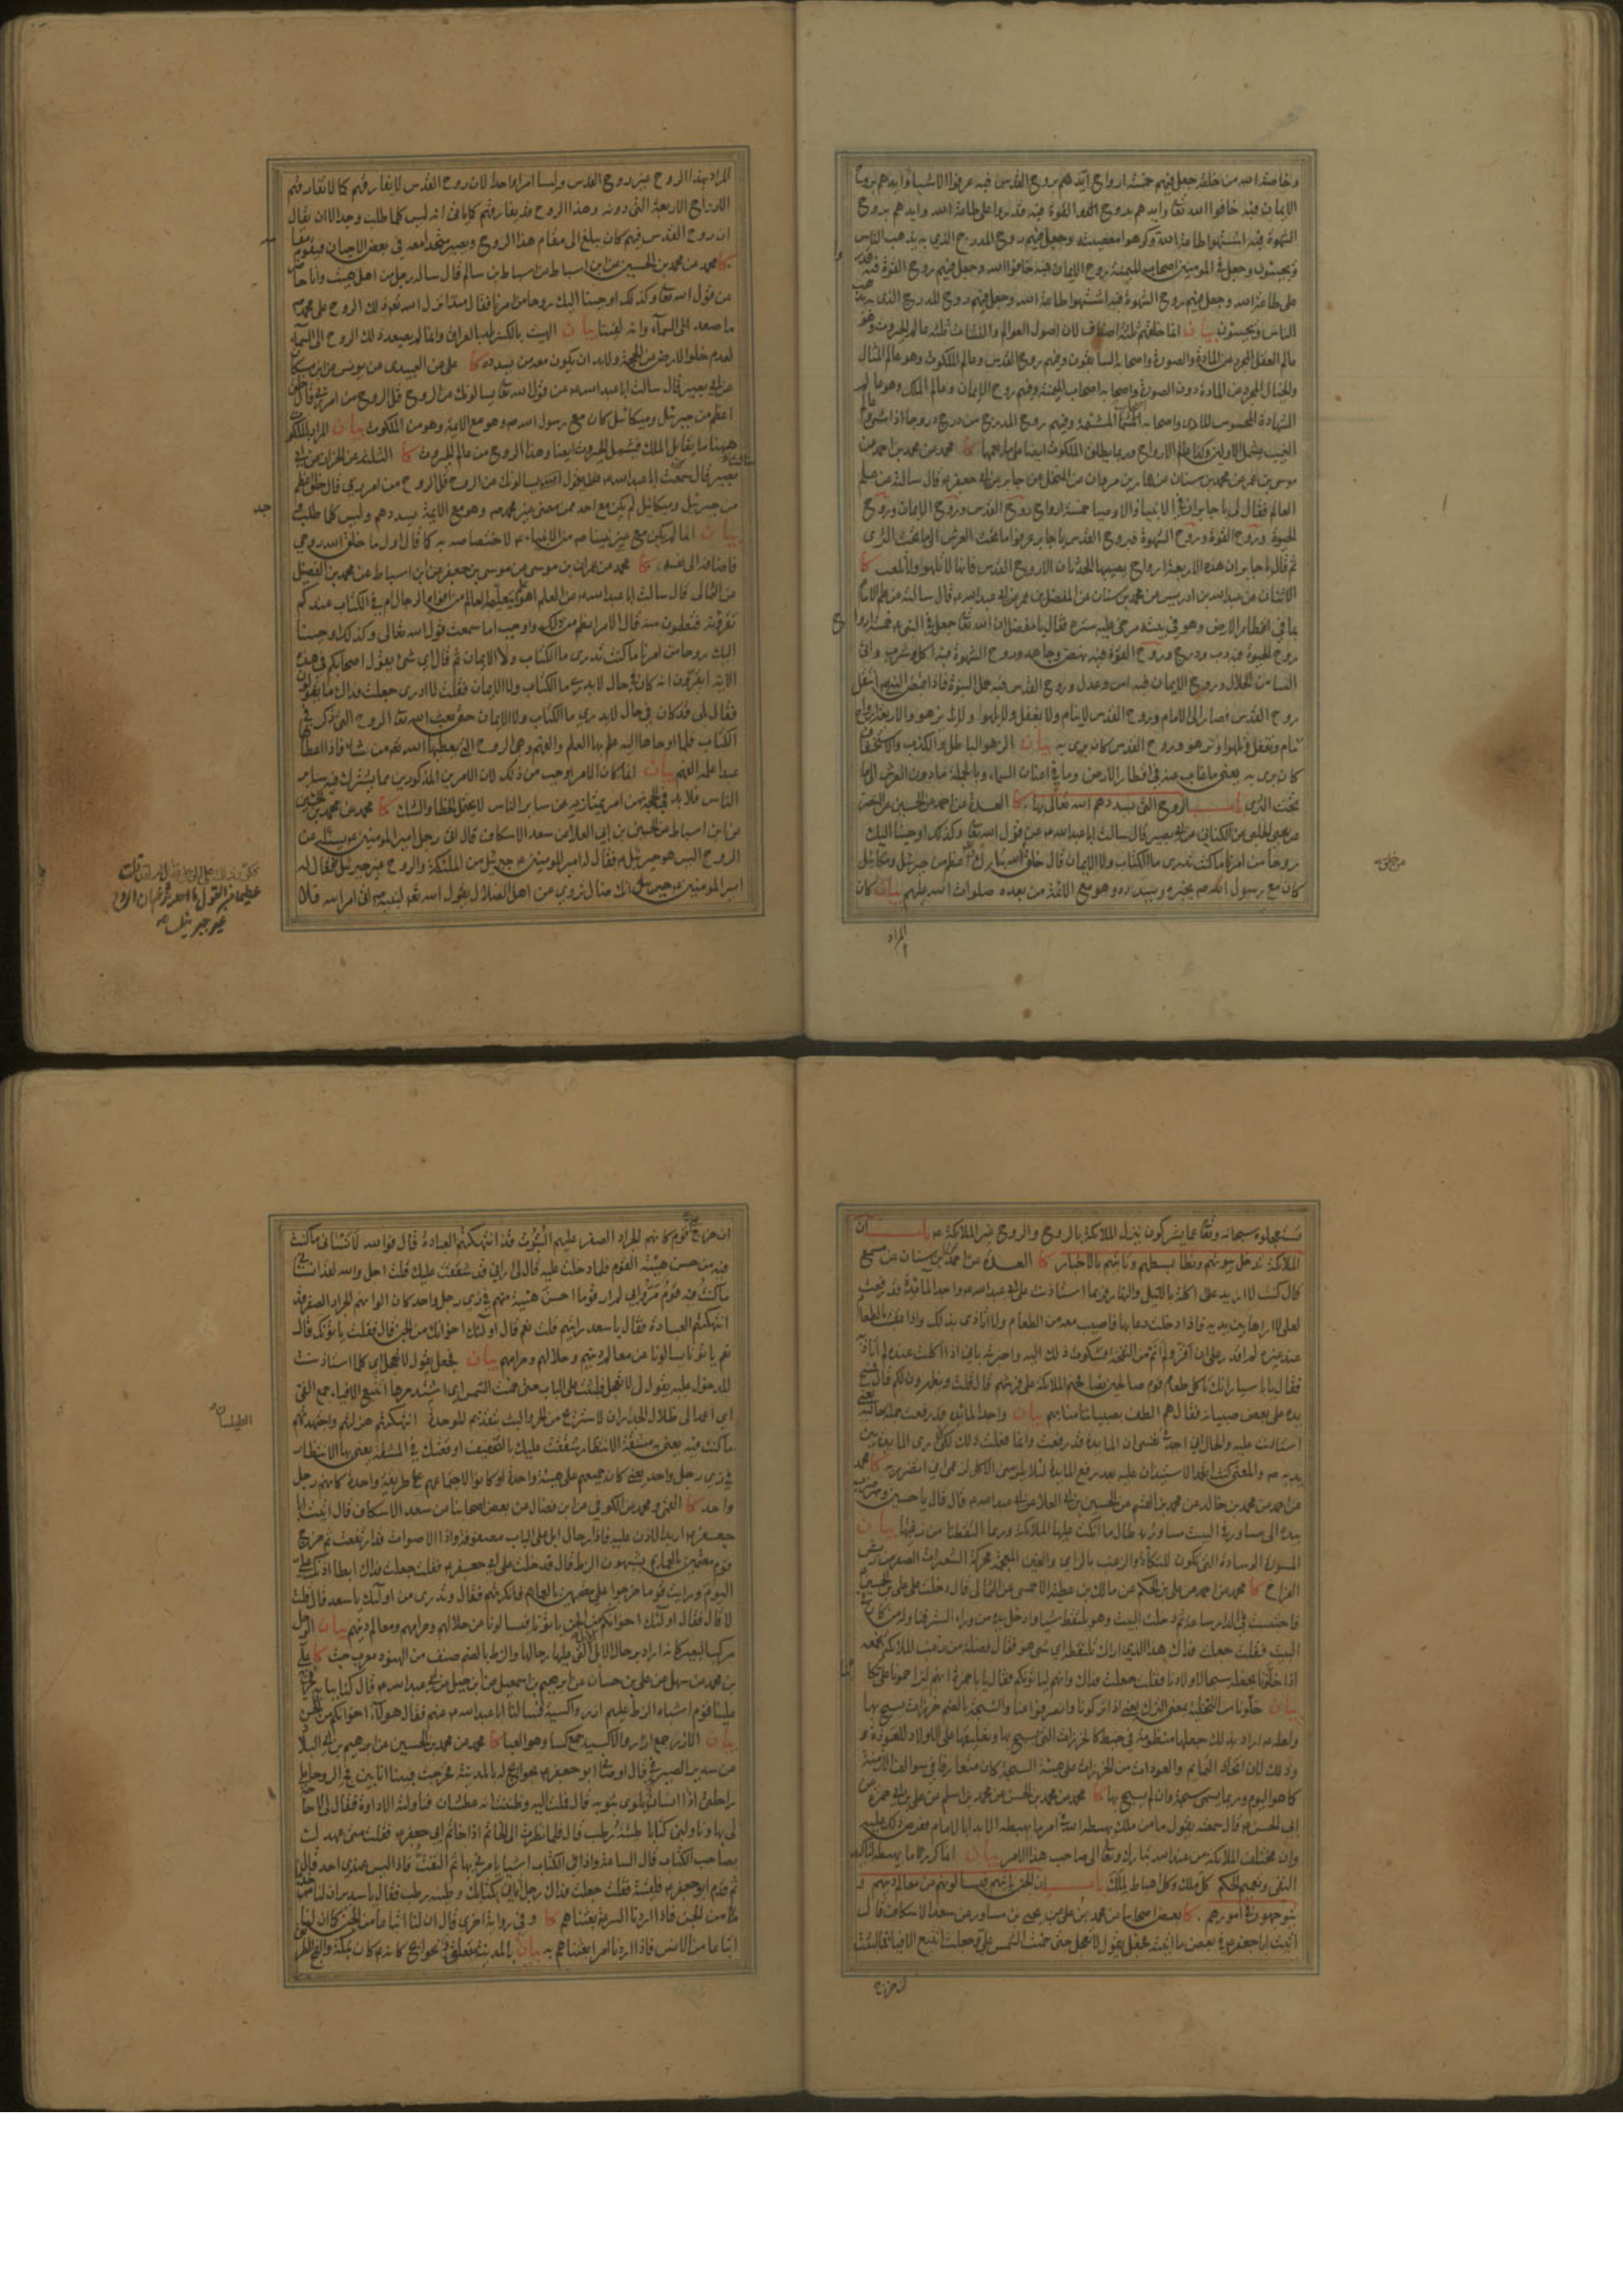 وخاصة الله من خلقه جعل فيهم خمسة ارواح ايدهم بروح القدس فبه عرفوا الاشياء وايدهم بروح
الايمان فبه خافوا الله تعا وايدهم بروح القوة فبه قدروا على طاعة الله وايدهم بروح
الشهوة فبه اشتهوا طاعة الله وكرهوا معصيته وجعل فيهم روح المدرج الذي به يذهب الناس
ويجيئون وجعل في المؤمنين اصحاب الميمنة روح الايمان فبه خافوا الله وجعل فيهم روح القوة فبه
على طاعة الله وجعل فيهم روح الشهوة فبه اشتهوا طاعة الله وجعل فيهم روح المدرج الذي به يذهب
الناس ويجيئون بيان انما خلقهم ثلثة اصناف لان اصول العوالم والنشات ثلثة عالم الجبروت وهو
عالم العقل المجرد عن المادة والصورة واصحابه السابقون وفيهم روح القدس وعالم الملكوت وهو عالم المثال
والخيال المجرد عن المادة دون الصورة واصحابه اصحاب الميمنة وفيهم روح الايمان وعالم الملك وهو عالم
الشهادة المحسوس المادي واصحابه اصحاب المشئمة وفيهم روح المدرج من درج دروجا اذا مشى
الغيب يشمل الاولين وكذا عالم الارواح وربما يطلق الملكوت ايضا على ما يعمهما كا محمد عن محمد بن احمد عن
موسى بن عمر عن محمد بن سنان عن عمار بن مروان عن المنخل عن جابر عن ابي جعفر ع قال سالته عن علم
العالم فقال لي يا جابر ان في الانبياء والاوصياء خمسة ارواح روح القدس وروح الايمان وروح
الحيوة وروح القوة وروح الشهوة فبروح القدس يا جابر عرفوا ما تحت العرش الى ما تحت الثرى
ثم قال يا جابر ان هذه الاربعة ارواح يصيبها الحدثان الا روح القدس فانها لا تلهو ولا تلعب كا
الاثنان عن عبدالله بن ادريس عن محمد بن سنان عن المفضل بن عمر عن ابي عبدالله ع قال سالته عن علم الامام
بما في اقطار الارض وهو في بيته مرخى عليه ستره فقال يا مفضل ان الله تعا جعل في النبي ص خمسة ارواح
روح الحيوة فبه دب ودرج وروح القوة فبه نهض وجاهد وروح الشهوة فبه اكل وشرب واتى
النساء من الحلال وروح الايمان فبه امن وعدل وروح القدس فبه حمل النبوة فاذا قبض النبي ص انتقل
روح القدس فصار الى الامام وروح القدس لا ينام ولا يغفل ولا يلهوا ولا يزهو والاربعة ارواح
تنام وتغفل وتلهوا وتزهو وروح القدس كان يرى به بيان الزهو الباطل والكذب والاستخفاف
كان يرى به يعني ما غاب عنه في اقطار الارض وما في اعنان السماء وبالجملة ما دون العرش الى ما
تحت الثرى باب الروح التي يسددهم الله تعالى بها كا العدة عن احمد عن الحسين عن النضر
عن يحيى الحلبي عن الكناني عن ابي بصير قال سالت ابا عبدالله ع عن قول الله تعا وكذلك اوحينا اليك
روحا من امرنا ما كنت تدري ما الكتاب ولا الايمان قال خلق من خلق الله اعظم من جبرئيل وميكائيل
كان مع رسول الله ص يخبره ويسدده وهو مع الائمة من بعده صلوات الله عليهم بيان كان
المراد
المراد بهذا الروح غير روح القدس وليسا امرا واحدا لان روح القدس لا يفارقهم كما لا تفارقهم
الارواح الاربعة التي دونه وهذا الروح قد يفارقهم كما ياتي انه ليس كلما طلب وجد الا ان يقال
ان روح القدس فيهم كان يبلغ الى مقام هذا الروح ويصير متحدا معه في بعض الاحيان فيقوم مقامه
كا محمد عن محمد بن الحسين عن ابن اسباط عن اسباط بن سالم قال ساله رجل من اهل هيت وانا حاضر
عن قول الله تعا وكذلك اوحينا اليك روحا من امرنا فقال منذ انزل الله تعا ذلك الروح على محمد ص
ما صعد الى السماء وانه لفينا بيان الهيت بالكسر بلد بالعراق وانما لم يصعد ذلك الروح الى السماء
لعدم خلو الارض عن الحجة ولا بد ان يكون معه من يسدده كا علي عن العبيدي عن يونس عن ابن مسكان
عن ابي بصير قال سالت ابا عبدالله ع عن قول الله تعا يسالونك عن الروح قل الروح من امر ربي قال خلق
اعظم من جبرئيل وميكائيل كان مع رسول الله ص وهو مع الائمة وهو من الملكوت بيان المراد بالملكوت
ههنا ما يقابل الملك فيشمل الجبروت ايضا وهذا الروح من عالم الجبروت كا الثلثة عن الخزاز عن ابي
بصير قال سمعت ابا عبدالله ع يقول يسالونك عن الروح قل الروح من امر ربي قال خلق اعظم
من جبرئيل وميكائيل لم يكن مع احد ممن مضى غير محمد ص وهو مع الائمة يسددهم وليس كلما طلب وجد
بيان انما لم يكن مع غير نبينا ص من الانبياء ع لاختصاصه به كما قال اول ما خلق الله روحي
فاضافه الى نفسه كا محمد عن عمران بن موسى عن موسى بن جعفر عن ابن اسباط عن محمد بن الفضيل
عن الثمالي قال سالت ابا عبدالله ع عن العلم اهو علم يتعلمه العالم من افواه الرجال ام في الكتاب عندكم
تقرؤنه فتعلمون منه قال الامر اعظم من ذلك واوجب اما سمعت قول الله تعالى وكذلك اوحينا
اليك روحا من امرنا ما كنت تدري ما الكتاب ولا الايمان ثم قال اي شئ يقول اصحابكم في هذه
الاية ايقرؤن انه كان في حال لا يدري ما الكتاب ولا الايمان فقلت لا ادري جعلت فداك ما يقولون
فقال بلى قد كان في حال لا يدري ما الكتاب ولا الايمان حتى بعث الله تعا الروح التي ذكر في
الكتاب فلما اوحاها اليه علم بها العلم والفهم وهي الروح التي يعطيها الله تعا من شاء فاذا اعطاها
عبدا علمه الفهم بيان انما كان الامر اوجب من ذلك لان الامرين المذكورين مما يشترك فيه ساير
الناس فلا بد في الحجة من امر يمتاز به عن ساير الناس لا يحتمل الخطا والشك كا محمد عن محمد بن الحسين
عن ابن اسباط عن الحسين بن ابي العلا عن سعد الاسكاف قال اتى رجل امير المؤمنين ع يسئله عن
الروح اليس هو جبرئيل ع فقال له امير المؤمنين ع جبرئيل من الملئكة والروح غير جبرئيل فقال له
امير المؤمنين ع انك ضال تروي عن اهل الضلال يقول الله تعا لنبيه ص اتى امر الله فلا
عظيما من القول ما احد يزعم ان الروح
غير جبرئيل
تستعجلوه سبحانه وتعا عما يشركون ينزل الملائكة بالروح والروح غير الملائكة ع باب ان
الملائكة تدخل بيوتهم وتطا بسطهم وتاتيهم بالاخبار كا العدة عن احمد عن ابن سنان عن مسمع
قال كنت لا ازيد على اكلة بالليل والنهار فربما استاذنت على ابي عبدالله ع واجد المائدة قد رفعت
لعلي لا اراها بين يديه فاذا دخلت دعا بها فاصيب معه من الطعام ولا اتاذى بذلك واذا عقبت بالطعام
عند غيره لم اقدر على ان اقر ولم انم من النفخة فشكوت ذلك اليه واخبرته باني اذا اكلت عنده لم اتاذ به
فقال يا ابا سيار انك تاكل طعام قوم صالحين تصافحهم الملائكة على فرشهم قال قلت ويظهرون لكم قال فمسح
يده على بعض صبيانه فقال هم الطف بصبياننا منا بهم بيان واجد المائدة قد رفعت جملة حالية
يديه ص والمعنى كنت اتعمد الاستيذان عليه بعد رفع المائدة لئلا يلزمني الاكل لزعمي اني اتضرر به كا محمد
عن احمد عن محمد بن خالد عن محمد بن القسم عن الحسين بن ابي العلا عن ابي عبدالله ع قال قال يا حسين وضرب
بيده الى مساور في البيت مساور طال ما اتكت عليها الملائكة وربما التقطنا من زغبها بيان
المسورة الوسادة التي تكون للتكاة والزغب بالزاي والغين المعجمة محركة الشعرات الصفر من ريش
الفراخ كا محمد عن احمد عن علي بن الحكم عن مالك بن عطية الاحمسي عن الثمالي قال دخلت على علي بن الحسين ع
فاحتبست في الدار ساعة ثم دخلت البيت وهو يلتقط شيئا وادخل يده من وراء الستر فناوله من كان في
البيت فقلت جعلت فداك هذا الذي اراك تلتقطه اي شئ هو فقال فضلة من زغب الملائكة نجمعه
اذا خلونا نجعله سبحا لاولادنا فقلت جعلت فداك وانهم لياتونكم فقال يا ابا حمزة انهم ليزاحمونا على تكاتنا
بيان خلونا من التخلية بمعنى الترك يعني اذا تركونا وانصرفوا عنا والسبحة بالضم خرزات يسبح بها
ولعله ع اراد بذلك جعلها منظومة في خيط كالخرزات التي يسبح بها وتعليقها على الاولاد للعوذة
وذلك لان اتخاذ التمايم والعوذات من الخرزات على هيئة السبحة كان متعارفا في سوالف الازمنة
كما هو اليوم وربما يسمى سبحة وان لم يسبح بها كا محمد عن محمد بن الحسن عن محمد بن اسلم عن علي بن ابي حمزة عن
ابي الحسن ع قال سمعته يقول ما من ملك يهبطه الله في امر ما يهبطه الا بدا بالامام فعرض ذلك عليه
وان مختلف الملائكة من عند الله تبارك وتعا الى صاحب هذا الامر بيان انما كرر ما يهبطه لتاكيد
النفي وتعميم الحكم كل ملك وكل اهباط لملك باب ان الجن ياتيهم فيسالونهم عن معالم دينهم و
يتوجهون في امورهم كا بعض اصحابنا عن محمد بن علي عن يحيى بن مساور عن سعد الاسكاف قال
اتيت ابا جعفر ع في بعض ما اتيته فجعل يقول لا تعجل حتى حميت الشمس علي وجعلت اتتبع الافياء فما لبثت
ان خرج
ان خرج علي قوم كانهم الجراد الصفر عليهم البتوت قد انتهكتهم العبادة قال فوالله لانساني ما كنت
فيه من حسن هيئة القوم فلما دخلت عليه قال لي اراني قد شققت عليك قلت اجل والله لقد انساني
ما كنت فيه قوم مروا بي لم ار قوما احسن هيئة منهم في زي رجل واحد كان الوانهم الجراد الصفر قد
انتهكتهم العبادة فقال يا سعد رايتهم قلت نعم قال اولئك اخوانك من الجن قال فقلت ياتونك قال
نعم ياتونا يسالونا عن معالم دينهم وحلالهم وحرامهم بيان فجعل يقول لا تعجل اي كلما استاذنت
للدخول عليه يقول لي لا تعجل فلبثت على الباب حتى حميت الشمس اي اشتد حرها اتتبع الافياء جمع الفئ
اي امشي الى ظلال الجدران لاستريح من الحر والبت بتقديم الموحدة انتهكتهم هزلتهم واجهدتهم
ما كنت فيه يعني به مشقة الانتظار شققت عليك بالتخفيف اوقعتك في المشقة يعني بها الانتظار
في زي رجل واحد يعني كان جميعهم على هيئة واحدة او كانوا لاجتماعهم على طريقة واحدة كانهم رجل
واحد كا القمي ومحمد عن الكوفي عن ابن فضال عن بعض اصحابنا عن سعد الاسكاف قال اتيت ابا
جعفر ع اريد الاذن عليه فاذا رحال ابل على الباب مصفوفة واذا الاصوات قد ارتفعت ثم خرج
قوم معتمين بالعمايم يشبهون الزط قال فدخلت على ابي جعفر ع فقلت جعلت فداك ابطا اذنك علي
اليوم ورايت قوما خرجوا علي معتمين بالعمايم فانكرتهم فقال وتدري من اولئك يا سعد قال قلت
لا قال فقال اولئك اخوانكم من الجن ياتونا فيسالونا عن حلالهم وحرامهم ومعالم دينهم بيان الرحل
مركب للبعير كانه اراد برحال الابل الابل التي عليها رحالها والزط بالضم صنف من الهنود معرب جت كا علي
بن محمد عن سهل عن علي بن حسان عن ابرهيم بن اسمعيل عن ابن جبل عن ابي عبدالله ع قال كنا ببابه فخرج
علينا قوم اشباه الزط عليهم ازر واكسية فسالنا ابا عبدالله ع عنهم فقال هؤلاء اخوانكم من الجن
بيان الازر جمع ازار والاكسية جمع كساء وهو العباء كا محمد عن محمد بن الحسين عن ابرهيم بن ابي البلاد
عن سدير الصيرفي قال اوصاني ابو جعفر ع بحوائج له بالمدينة فخرجت فبينا انا بين فج الروحاء على
راحلتي اذا انسان يلوي بثوبه قال فملت اليه وظننت انه عطشان فناولته الاداوة فقال لا حاجة
لي بها وناولني كتابا طينه رطب قال فلما نظرت الى الخاتم اذا خاتم ابي جعفر ع فقلت متى عهدك
بصاحب الكتاب قال الساعة واذا في الكتاب اشياء يامرني بها ثم التفت فاذا ليس عندي احد قال
ثم قدم ابو جعفر ع فلقيته فقلت جعلت فداك رجل اتاني بكتابك وطينه رطب فقال يا سدير ان لنا
خدما من الجن فاذا اردنا السرعة بعثناهم كا وفي رواية اخرى قال ان لنا اتباعا من الجن كما ان لنا
اتباعا من الانس فاذا اردنا امرا بعثناهم بيان بالمدينة متعلق بحوائج كانه كان بمكة والفج الطريق
الطيلسان